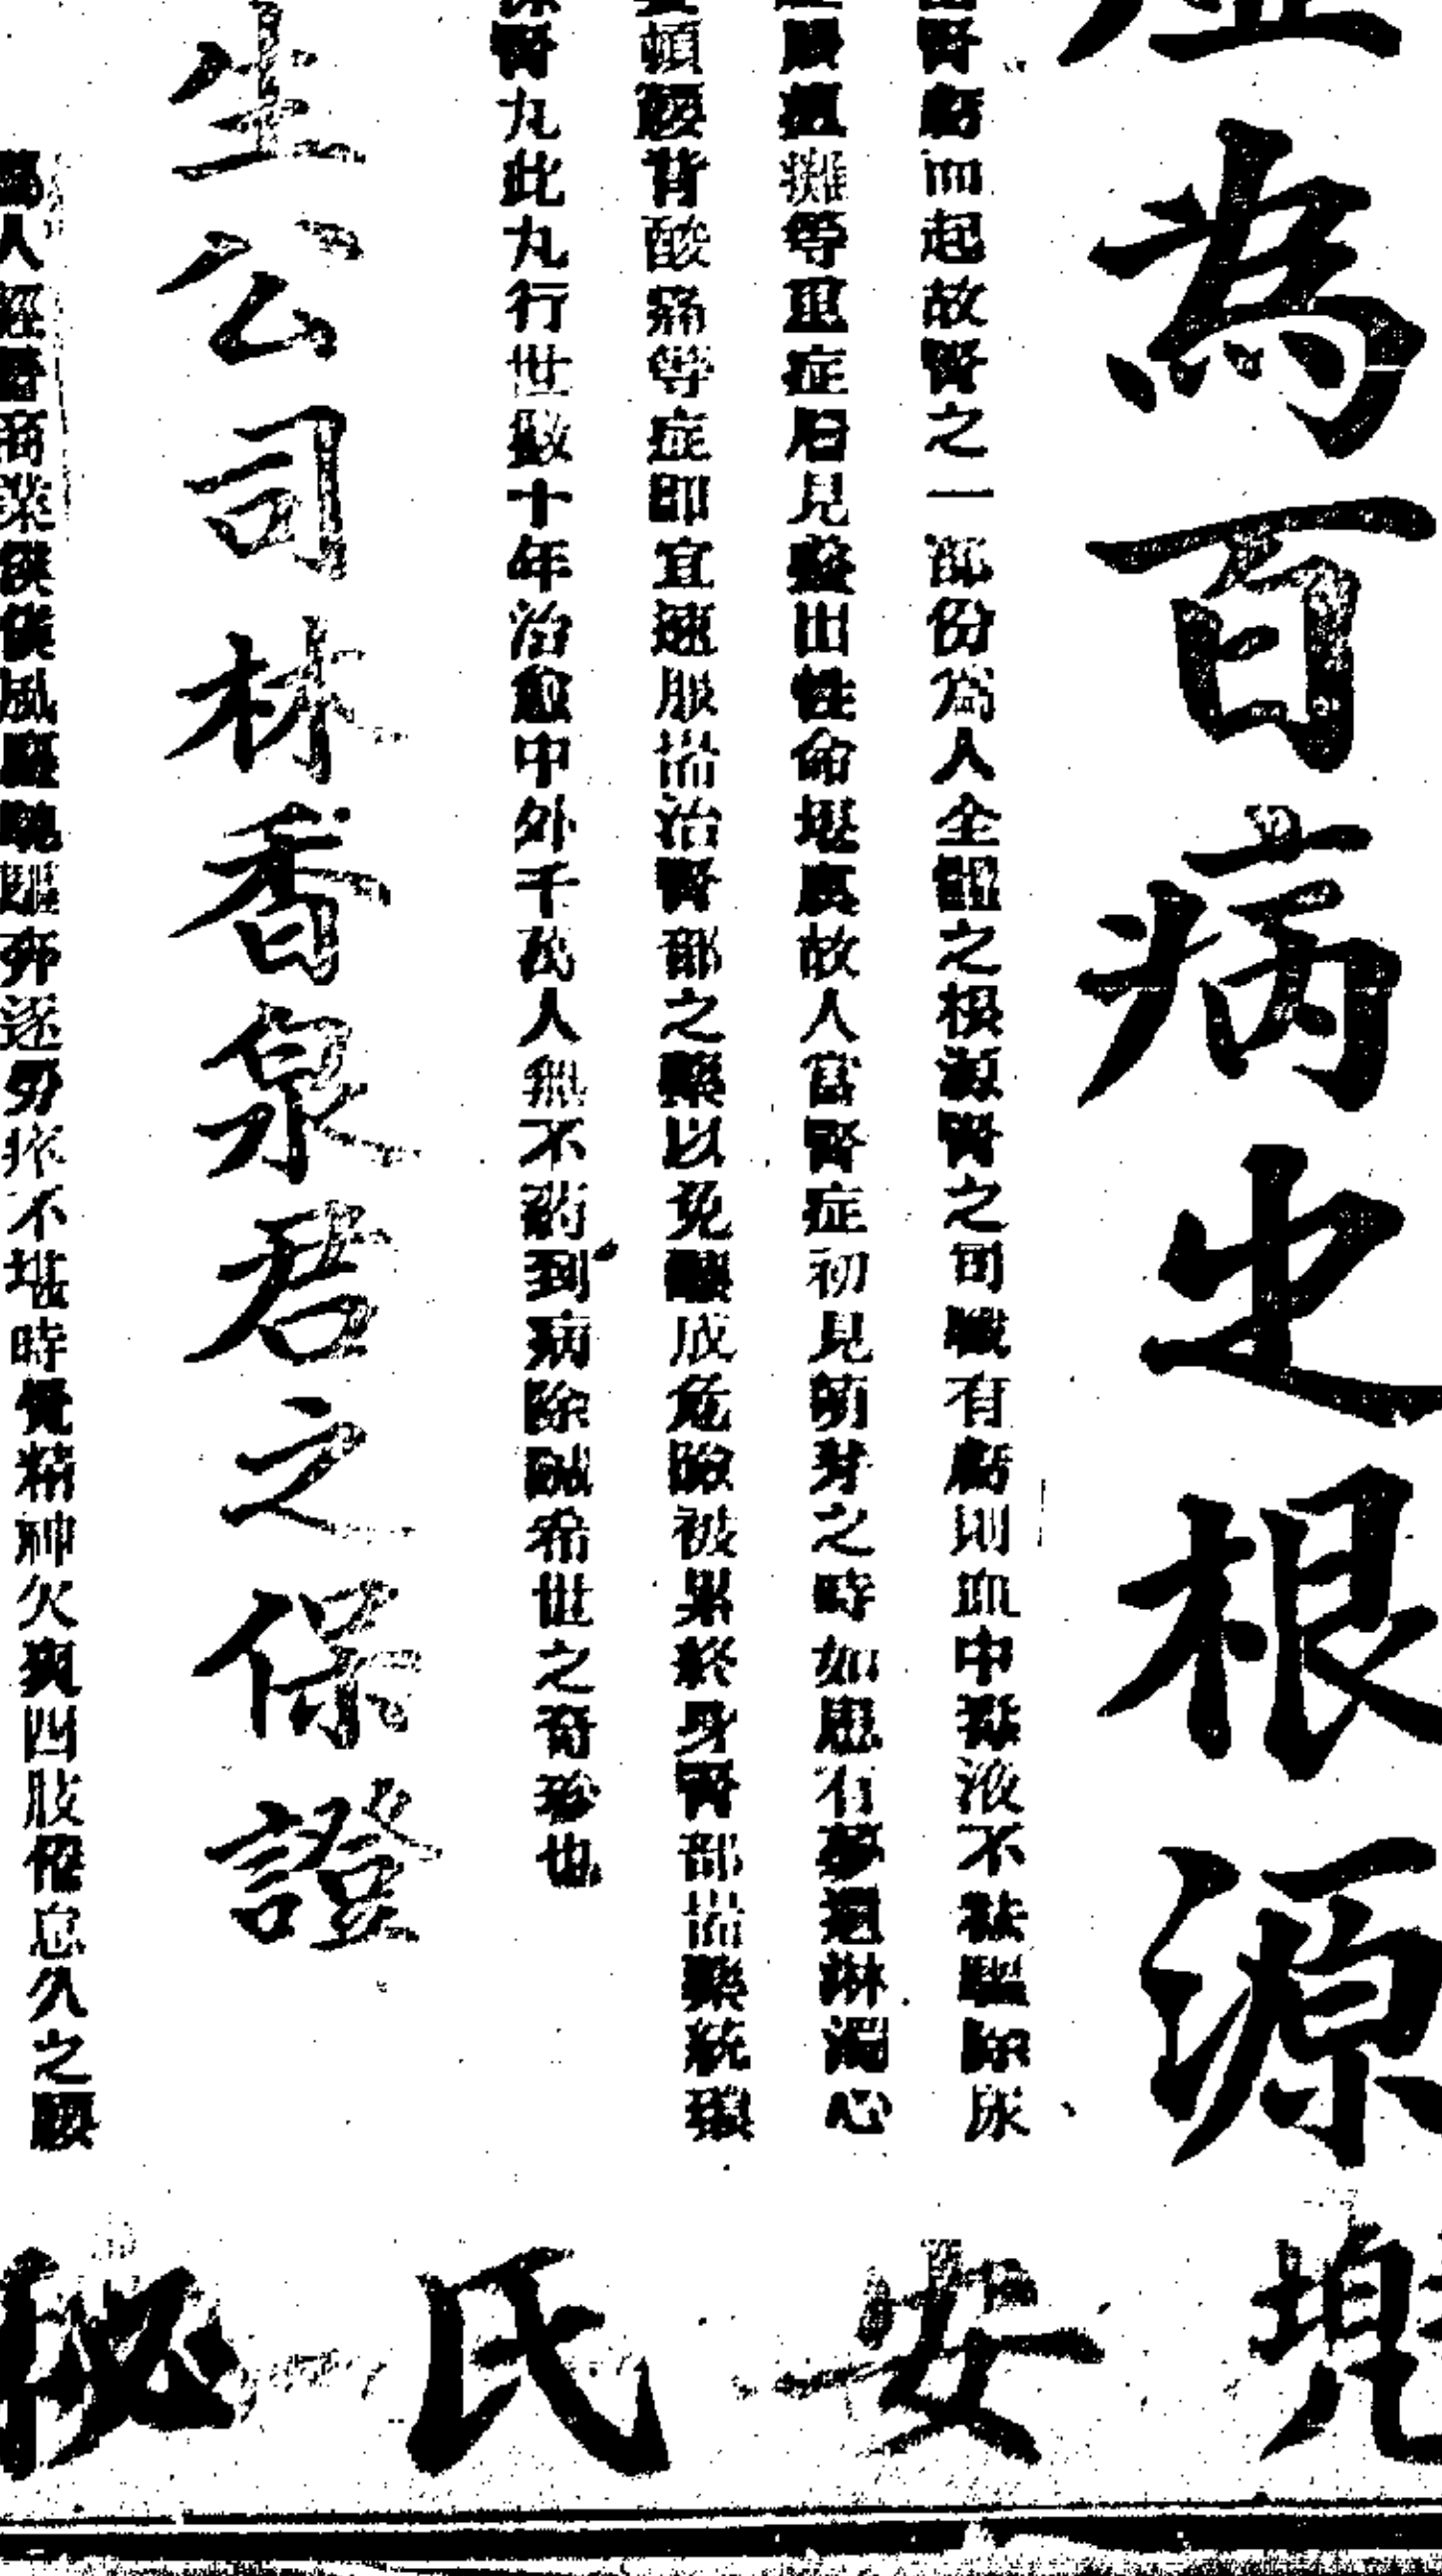 為百病之根源
腎虧而起故腎之一部份為人全體之根源腎之司職有虧則血中養液不祛驅除尿
癱等重症后見發出性命堪虞故人當腎症初見萌芽之時如患有夢遺淋濁心
頓腰背酸痛等症即宜速服耑治腎部之藥以免釀成危險被累終身腎部耑藥統環
腎丸此丸行世數十年治愈中外千萬人無不藥到病除誠希世之奇珍也
生公司林香泉君之保證
人經營商業僕僕風塵馳驅奔逐勞瘁不堪時覺精神欠爽四肢倦怠久之腰
兜安氏秘